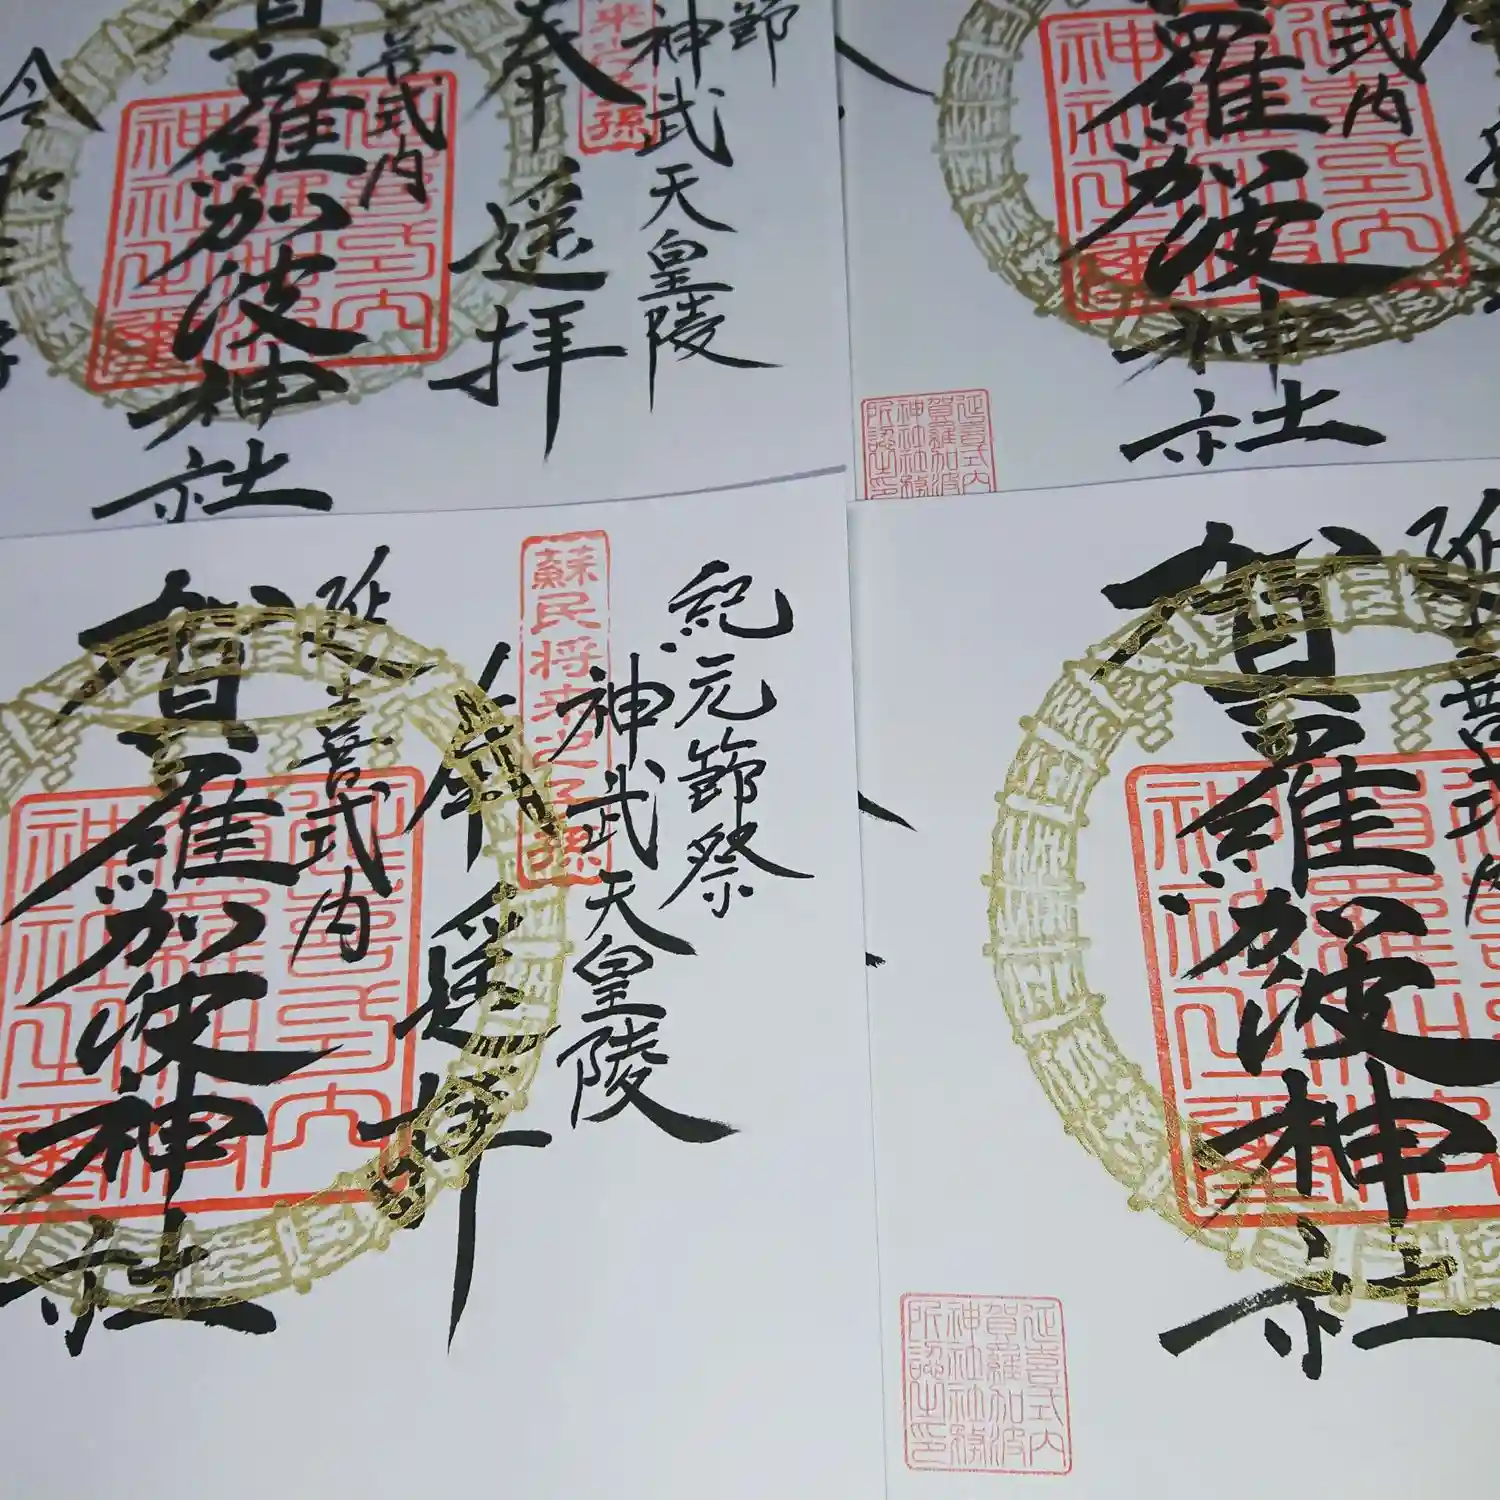 節
神武天皇陵
奉遥拝
來之子孫
式内
賀羅加波神社
令
式内
羅加波神社
延喜式内
賀羅加波
神社社務
所認之印
紀元節祭
神武天皇陵
蘇民将来之子孫
奉遥拝
延喜式内
賀羅加波神社
延喜式内
賀羅加波神社
延喜式内
賀羅加波
神社社務
所認之印